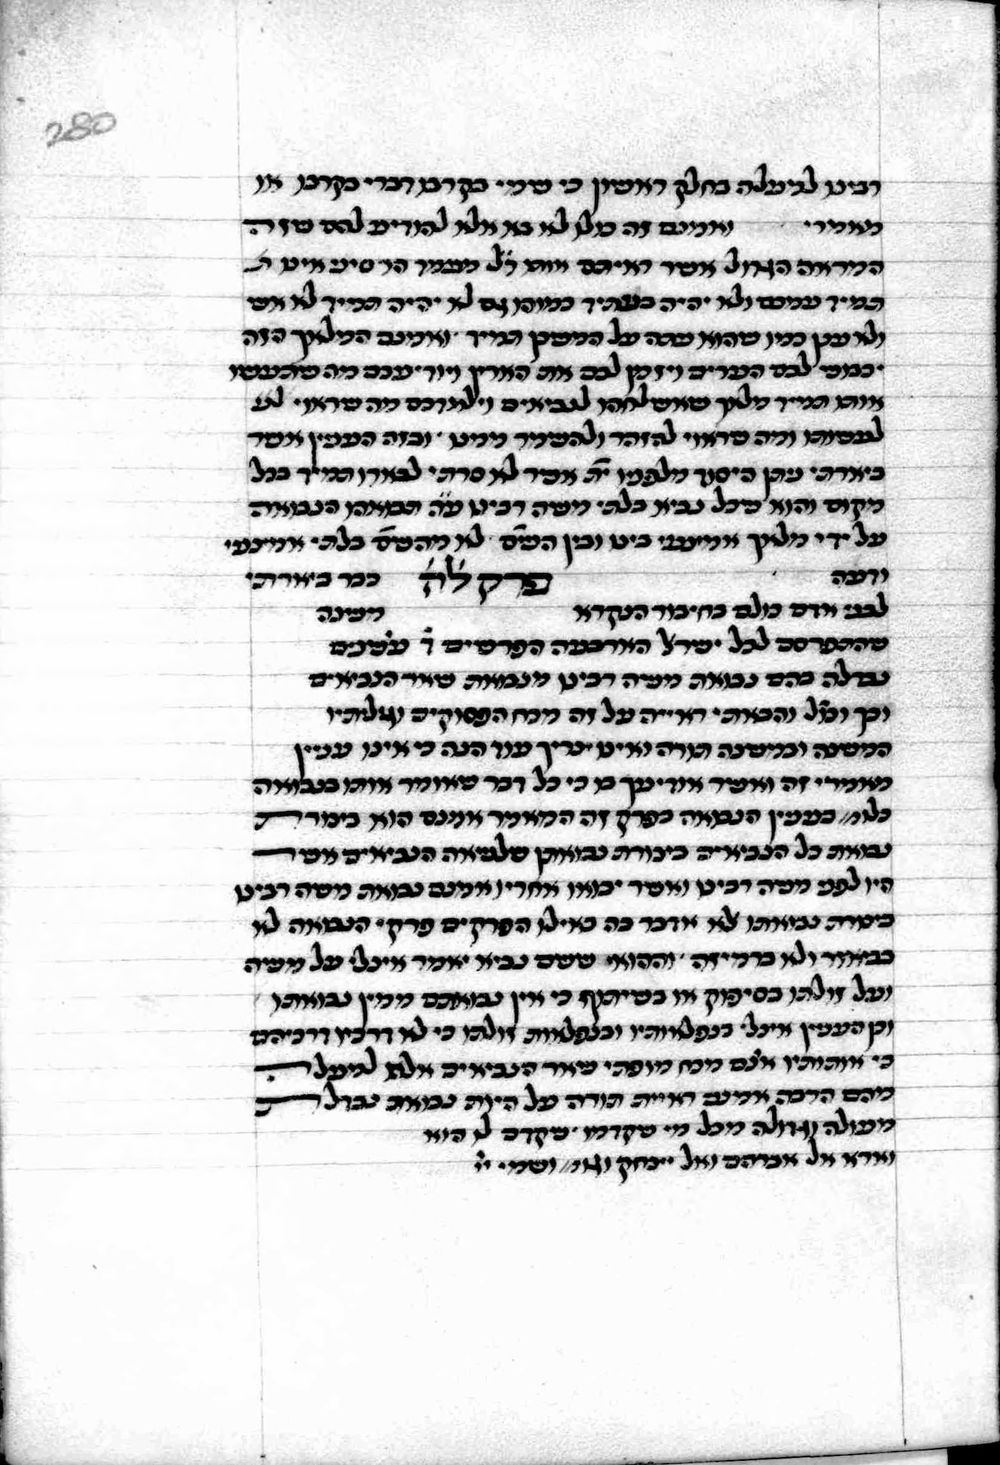 280
רבינו למעלה בחלק ראשון כי שמי בקרבו דברי בקרבו או
מאמרי ואמנם זה כולו לא בא אלא להודיע להם שזה
המראה הגדול אשר ראיתם אותו ר״ל מעמד הר סיני אינו
תמיד עמכם ולא יהיה בעתיד כמוהו גם לא יהיה תמיד לא אש
ולא ענן כמו שהוא עתה על המשכן תמיד ואמנם המלאך הזה
יכבוש לכם הערים ויזמן לכם את הארץ ויודיעכם מה שתעשו
אותו תמיד מלאך שאשלחהו לנביאים וילמדכם מה שראוי
לעשותו ומה שראוי להזהר ולהשמר ממנו ובזה הענין אשר
ביארתי נתן היסוד מלפניו ית׳ אשר לא סרתי לבארו תמיד בכל
מקום והוא שכל נביא בלתי משה רבינו ע״ה תבואהו הנבואה
על ידי מלאך אמצעי בינו ובין השם לא מהשם בלתי אמצעי
ודעה פרק ל״ה כבר ביארתי
לבני אדם כולם בחיבור הנקרא משנה
שהתפרסם לכל ישראל הארבעה הפרשים ד׳ ענינים
נבדלה בהם נבואת משה רבינו מנבואת שאר הנביאים
וכך וכו׳ והבאתי ראייה על זה מכח הפסוקים
המשנה ובמשנה תורה ואינו צריך עוד הנה כי אינו ענין
מאמרי זה ואשר אודיעך בו כי כל דבר שאומר אותו בנבואה
כלומ׳ בענין הנבואה בפרק זה המאמר אמנם הוא בימות
נבואת כל הנביאים בימות נבואתן של אלה הנביאים אשר
היו לפני משה רבינו ואשר יבואו אחריו ואמנם נבואת משה רבינו
נבואתו לא אדבר בה באילו הפרקים פרקי הנבואה לא
בביאור ולא ברמיזה וההוא ששם נביא יאמר אצלי על משה
ועל זולתו בסיפוק או בשיתוף כי אין נבואתם ממין נבואתו
וכן הענין אצלי בנפלאותיו ובנפלאות זולתו כי לא דרכיו דרכיהם
כי אותותיו אינם מכח מופתי שאר הנביאים אלא למעלה
מהם הרבה אמנם ראיית תורה על היות נבואתו נבדלת
מעולה וגדולה מכל מי שקדמו שקדם לו הוא
וארא אל אברהם ואל יצחק וגו׳ ושמי יי׳